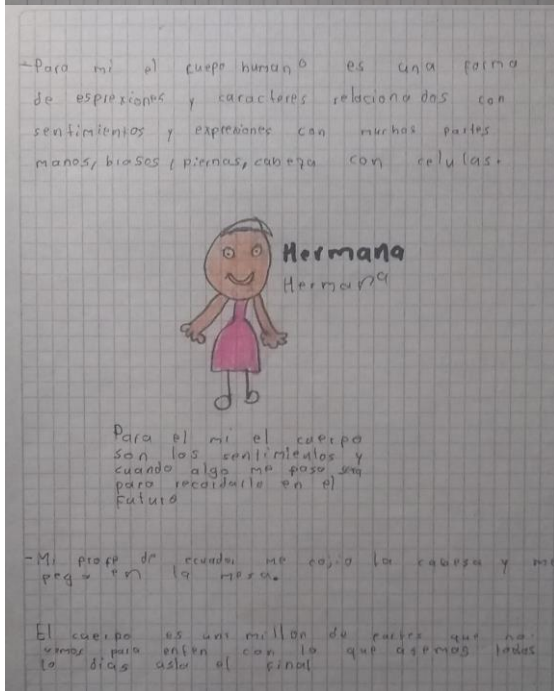 -Para mi el cuepo humano es una forma
de esprexiones y caracteres relacionados con
sentimientos y expreriones con muchas partes
manos, brasos, piernas, cabeza con celulas.
Hermana
Hermana
Para el mi el cuerpo
son los sentimientos y
cuando algo me pasa
para recordarlo en el
Futuro
-Mi profe de ecuador me cojio la cabesa y me
pego en la mesa.
El cuerpo es un millon de partes que
vimos para con lo que asemos todos
lo dias asta el final